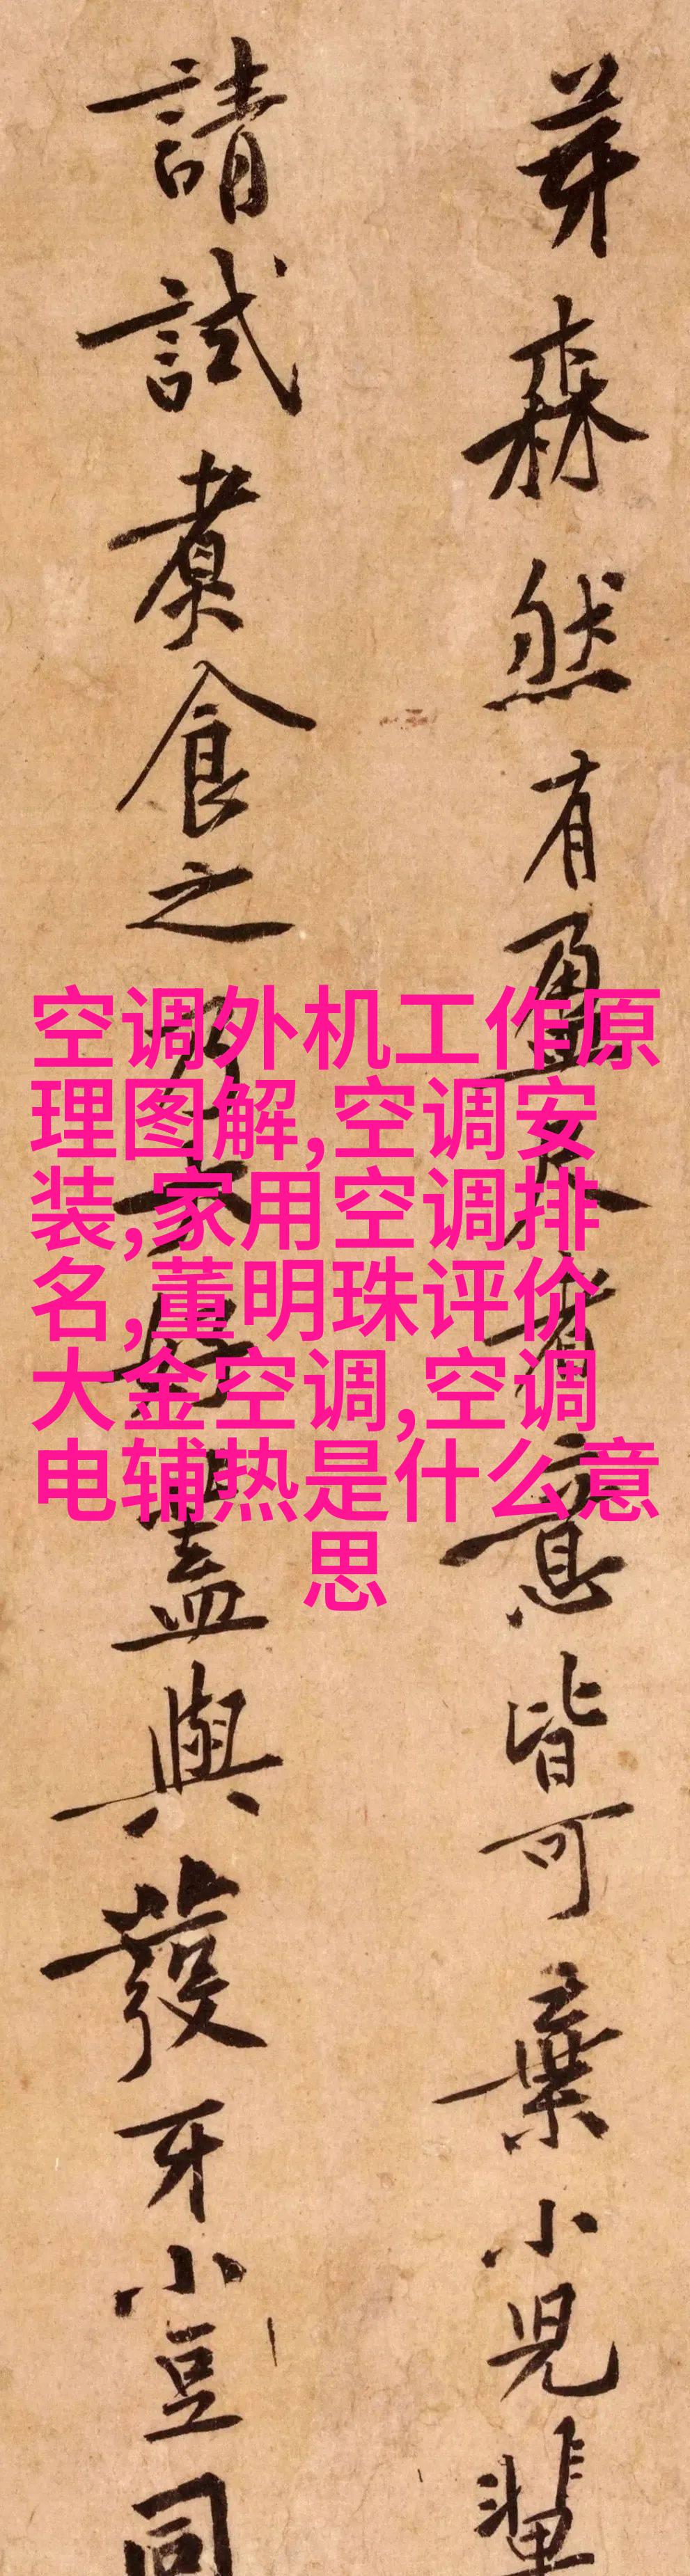 芽森然有盈尺者意皆可棄小児輩
請試煮食之乃大好蓋與發牙小豆同
空调外机工作原
理图解,空调安
装,家用空调排
名,董明珠评价
大金空调,空调
电辅热是什么意
思